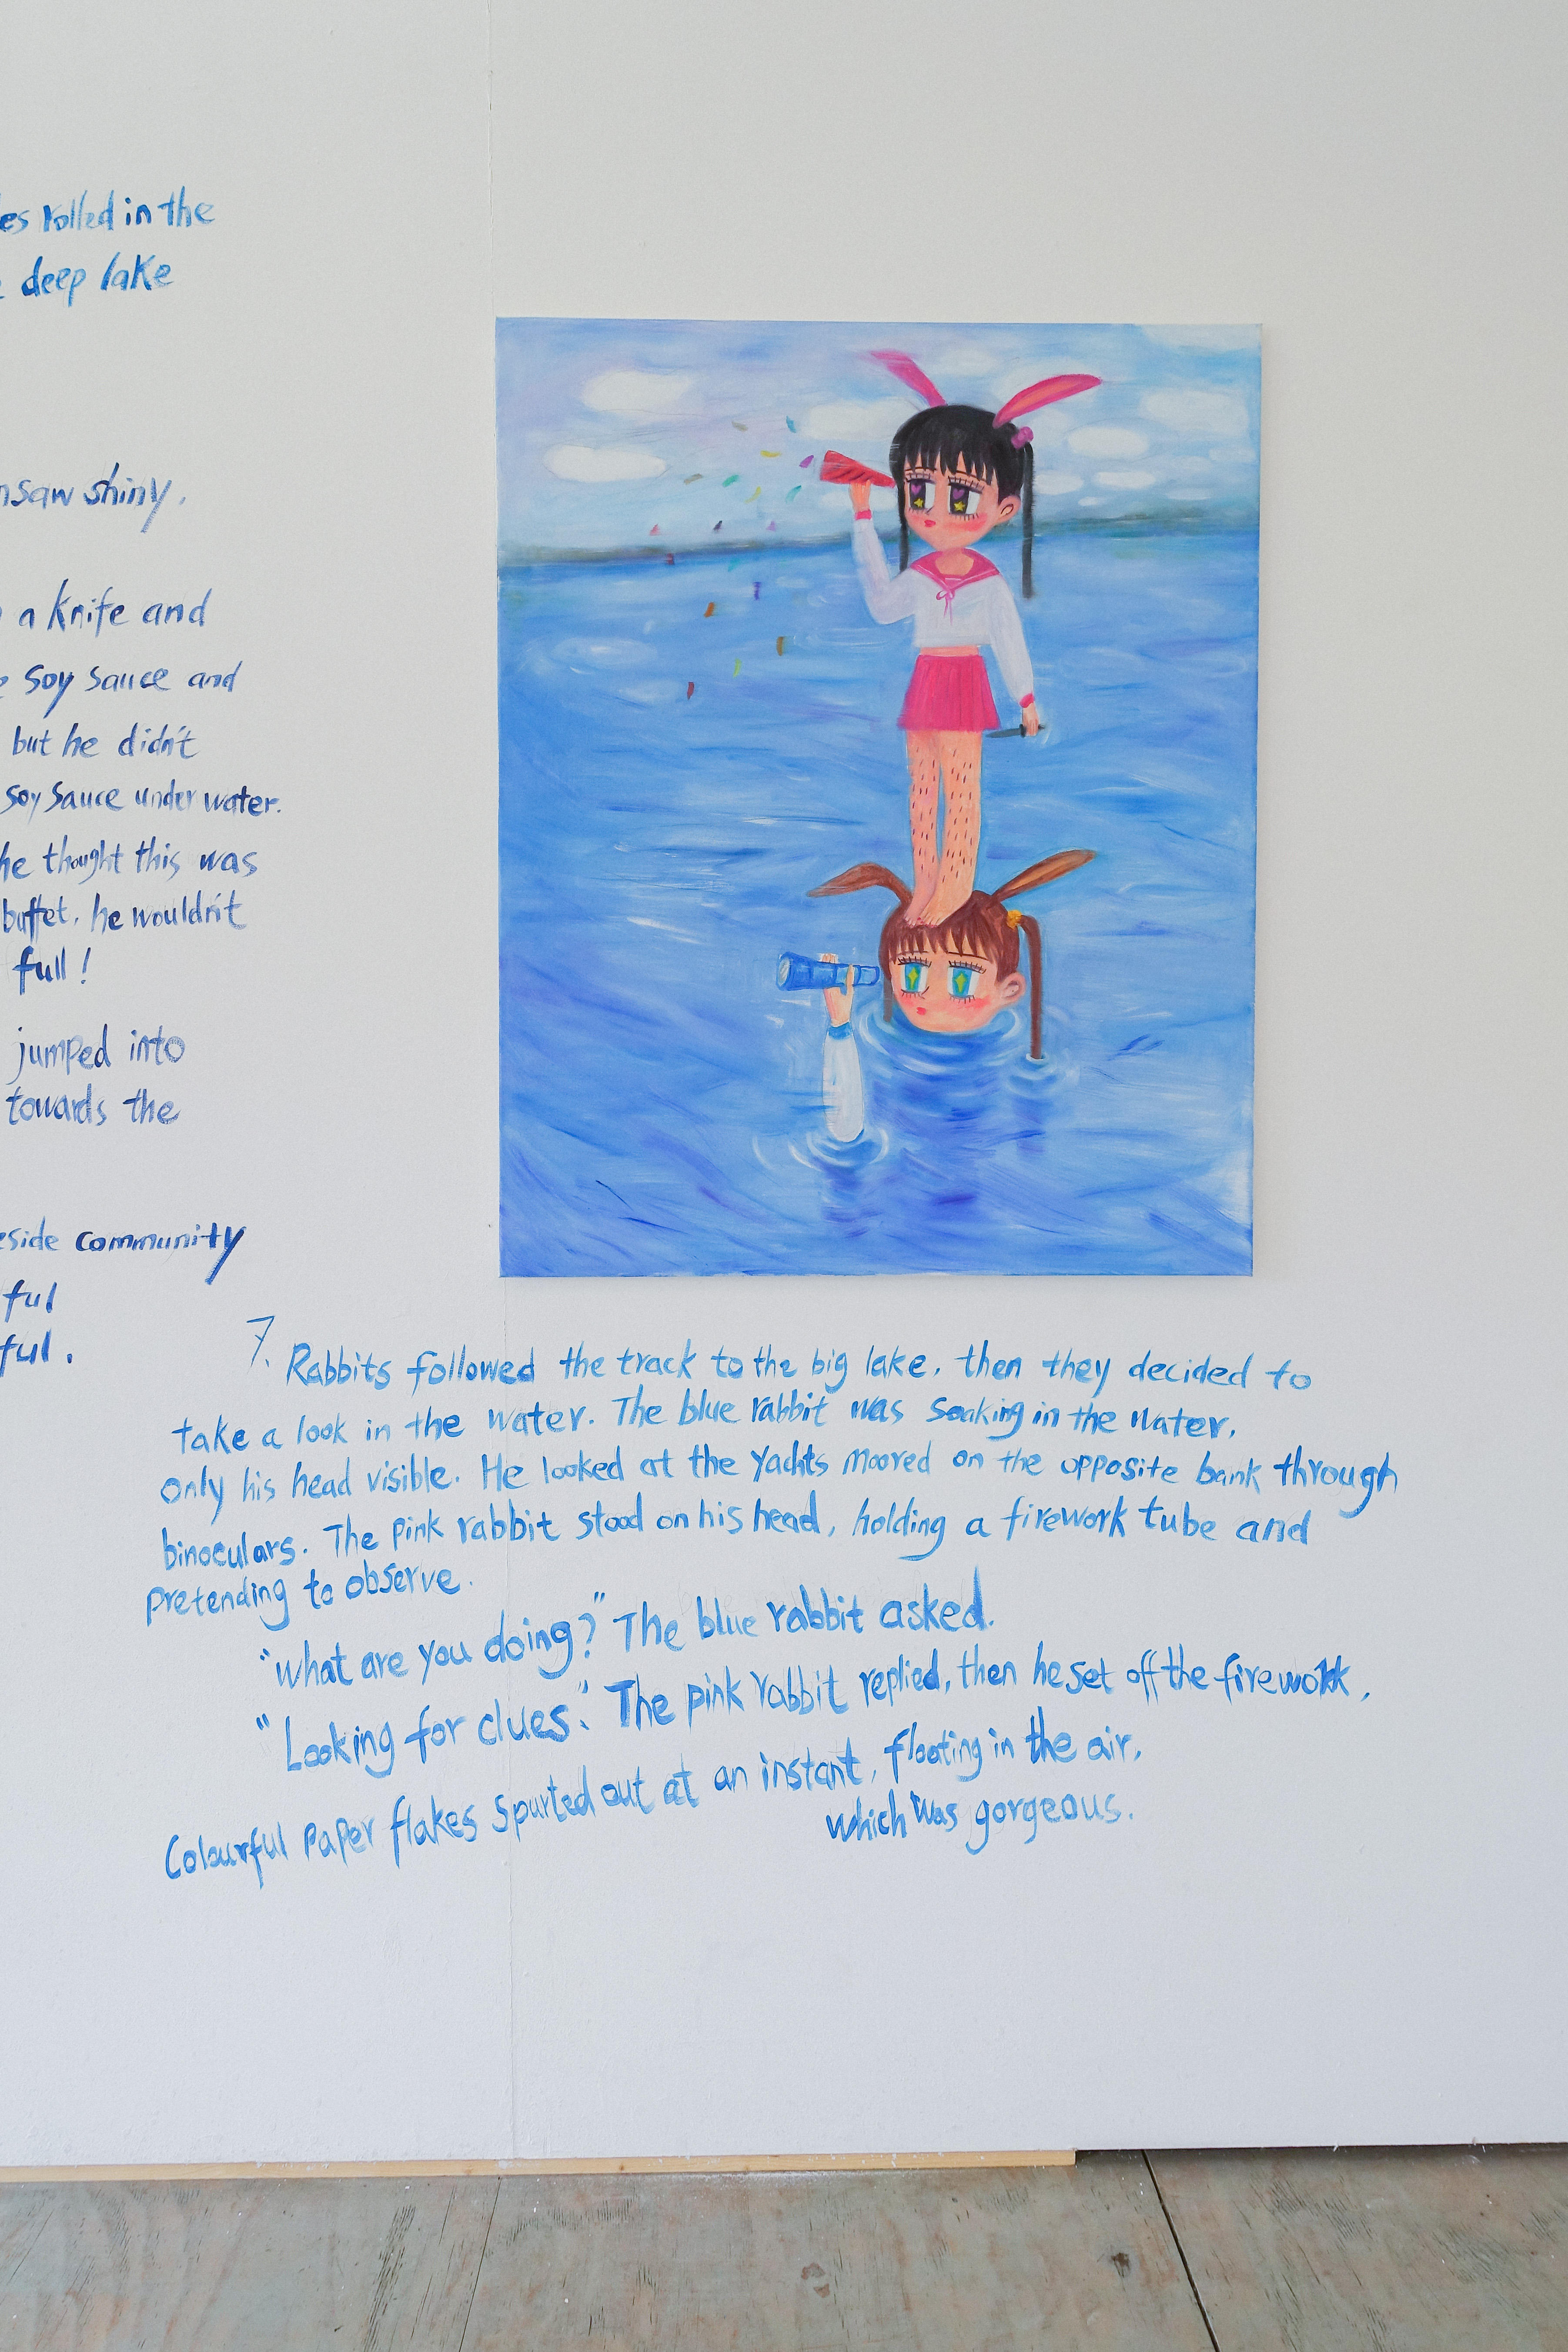 rolled in the
deep lake
shiny.
a knife and
soy sauce and
but he didn't
soy sauce under water.
he thought this was
buffet, he wouldn't
full!
jumped into
towards the
community
ful
ful.
7. Rabbits followed the track to the big lake, then they decided to
take a look in the water. The blue rabbit was soaking in the water,
only his head visible. He looked at the yachts moored on the opposite bank through
binoculars. The pink rabbit stood on his head, holding a firework tube and
pretending to observe.
"what are you doing?" The blue rabbit asked.
"Looking for clues". The pink rabbit replied, then he set off the firework,
Colourful paper flakes spurted out at an instant, floating in the air,
which was gorgeous.